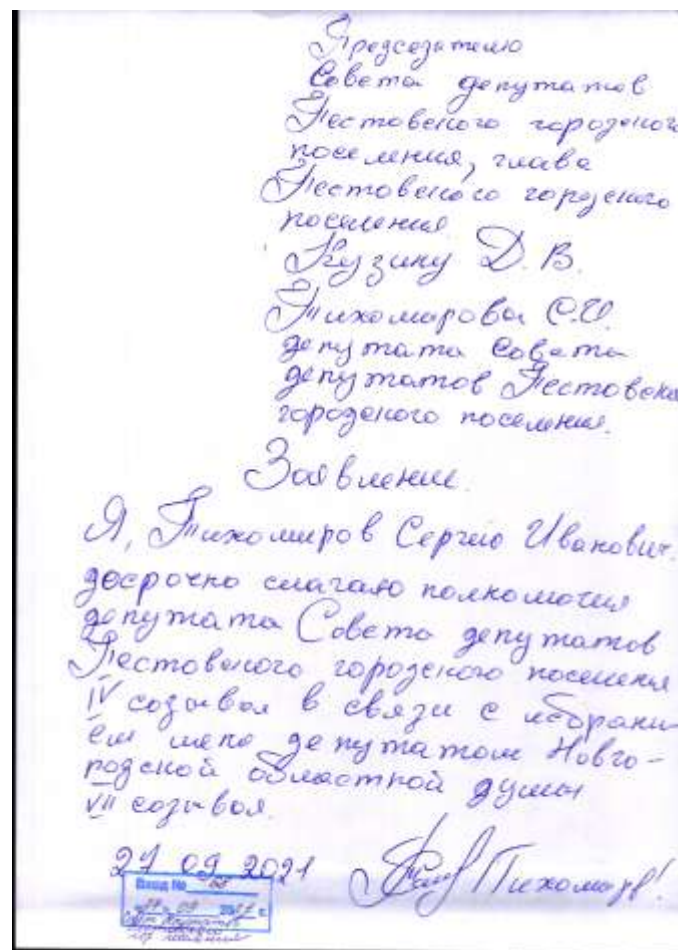 Председателю
Совета депутатов
Пестовского городского
поселения, глава
Пестовского городского
поселения
Кузину Д. В.
Тихомирова С.И.
депутата Совета
депутатов Пестовско
городского поселения.
Заявление.
Я, Тихомиров Сергей Иванович.
досрочно слагаю полномочия
депутата Совета депутатов
Пестовского городского поселения
IV созыва в связи с избрани-
ем меня депутатом Новго-
родской областной думы
VII созыва.
27 09 2021 Тихомиров
Вход №